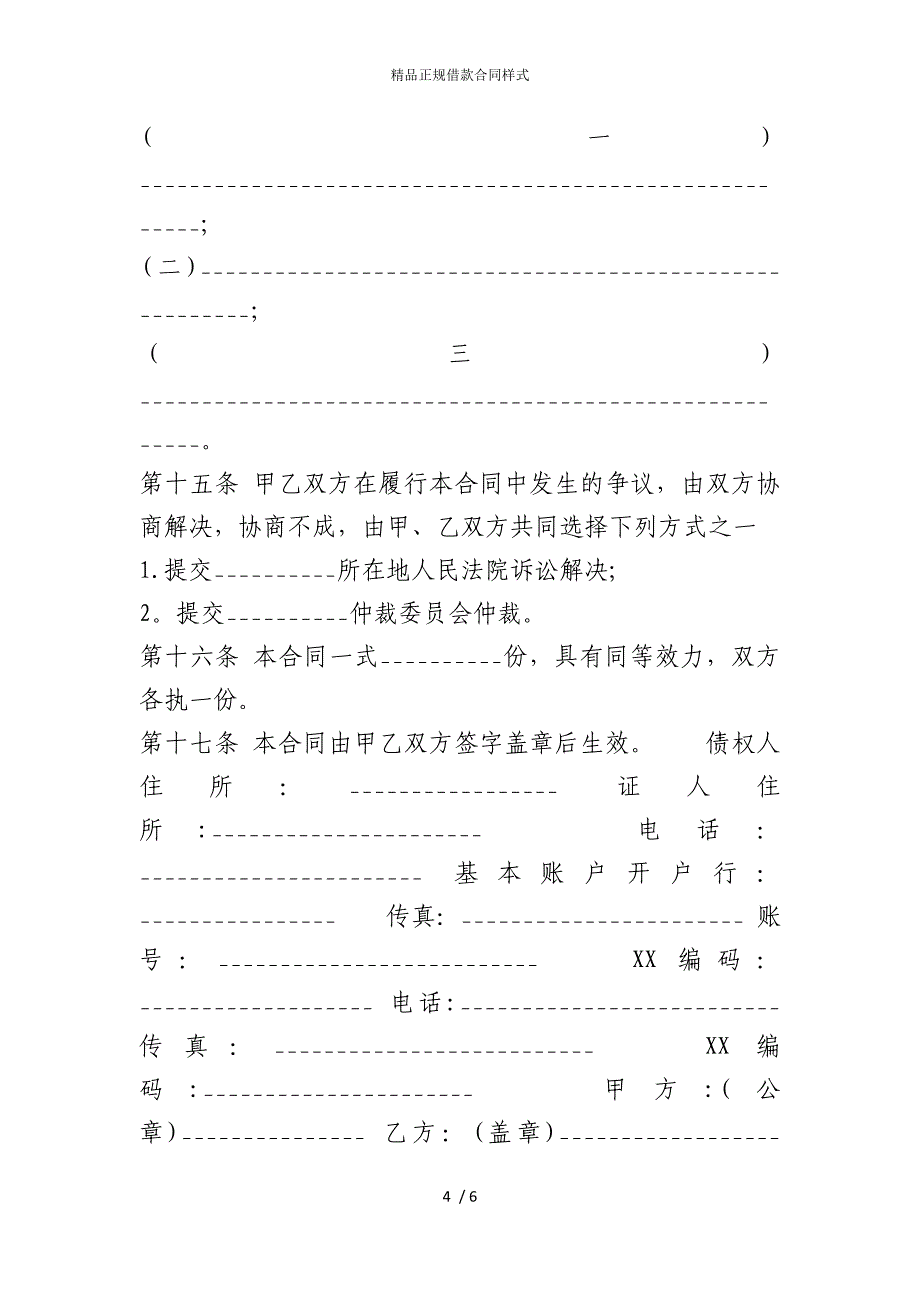 精品正规借款合同样式
( 一 )
___________________________________________________
_____;
(二)_______________________________________________
_________;
( 三 )
___________________________________________________
_____。
第十五条 甲乙双方在履行本合同中发生的争议，由双方协
商解决，协商不成，由甲、乙双方共同选择下列方式之一
1.提交__________所在地人民法院诉讼解决;
2。提交__________仲裁委员会仲裁。
第十六条 本合同一式__________份，具有同等效力，双方
各执一份。
第十七条 本合同由甲乙双方签字盖章后生效。 债权人
住 所 : _________________ 证 人 住
所 :______________________ 电 话 :
_______________________ 基 本 账 户 开 户 行:
________________ 传真: _______________________ 账
号: __________________________ XX 编码:
___________________ 电话:__________________________
传真: __________________________ XX 编
码:______________________ 甲方:(公
章)_______________ 乙方: (盖章)__________________
4 / 6